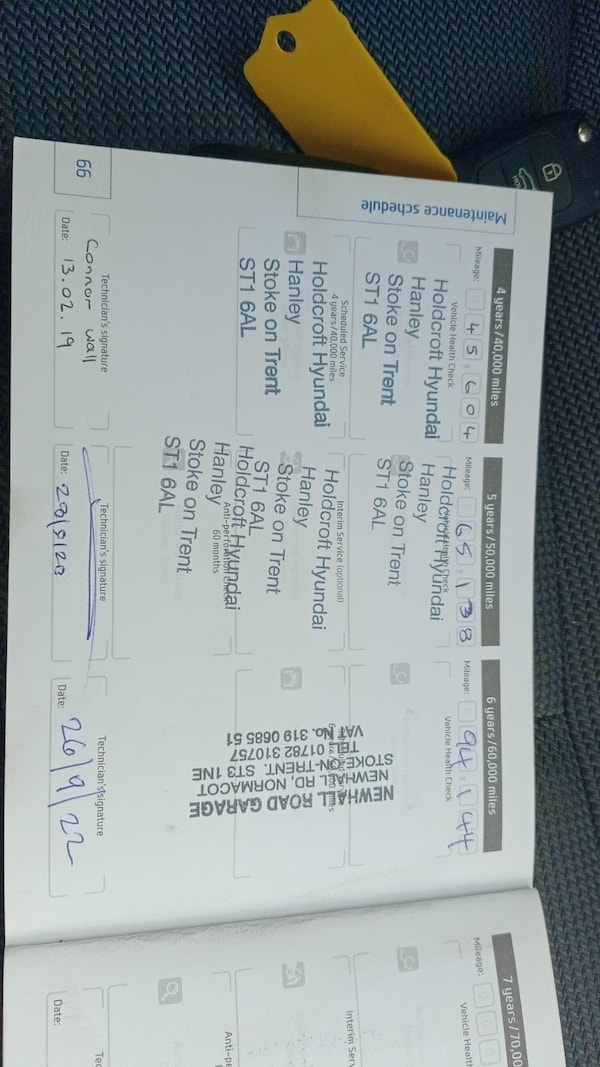 Maintenance schedule
4 years/40,000 miles
Mileage: 45,604
Vehicle Health Check
Holdcroft Hyundai
Hanley
Stoke on Trent
ST1 6AL
Scheduled Service
4 years/40,000 miles
Holdcroft Hyundai
Hanley
Stoke on Trent
ST1 6AL
Technician's signature
Connor Wall
Date: 13.02.19
5 years/50,000 miles
Mileage: 65,138
Holdcroft Hyundai
Hanley
Stoke on Trent
ST1 6AL
Interim Service (optional)
Holdcroft Hyundai
Hanley
Stoke on Trent
ST1 6AL
Anti-perforation
60 months
Holdcroft Hyundai
Hanley
Stoke on Trent
ST1 6AL
Technician's signature
Date: 28/9/20
6 years/60,000 miles
Mileage: 94,144
Vehicle Health Check
NEWHALL ROAD GARAGE
NEWHALL RD, NORMACOT
STOKE-ON-TRENT. ST3 1NE
TEL: 01782 310757
VAT No. 319 0685 51
Technician's signature
Date: 26/9/22
66
7 years/70,00
Mileage:
Vehicle Healt
Interim Serv
Anti-pe
Tec
Date: